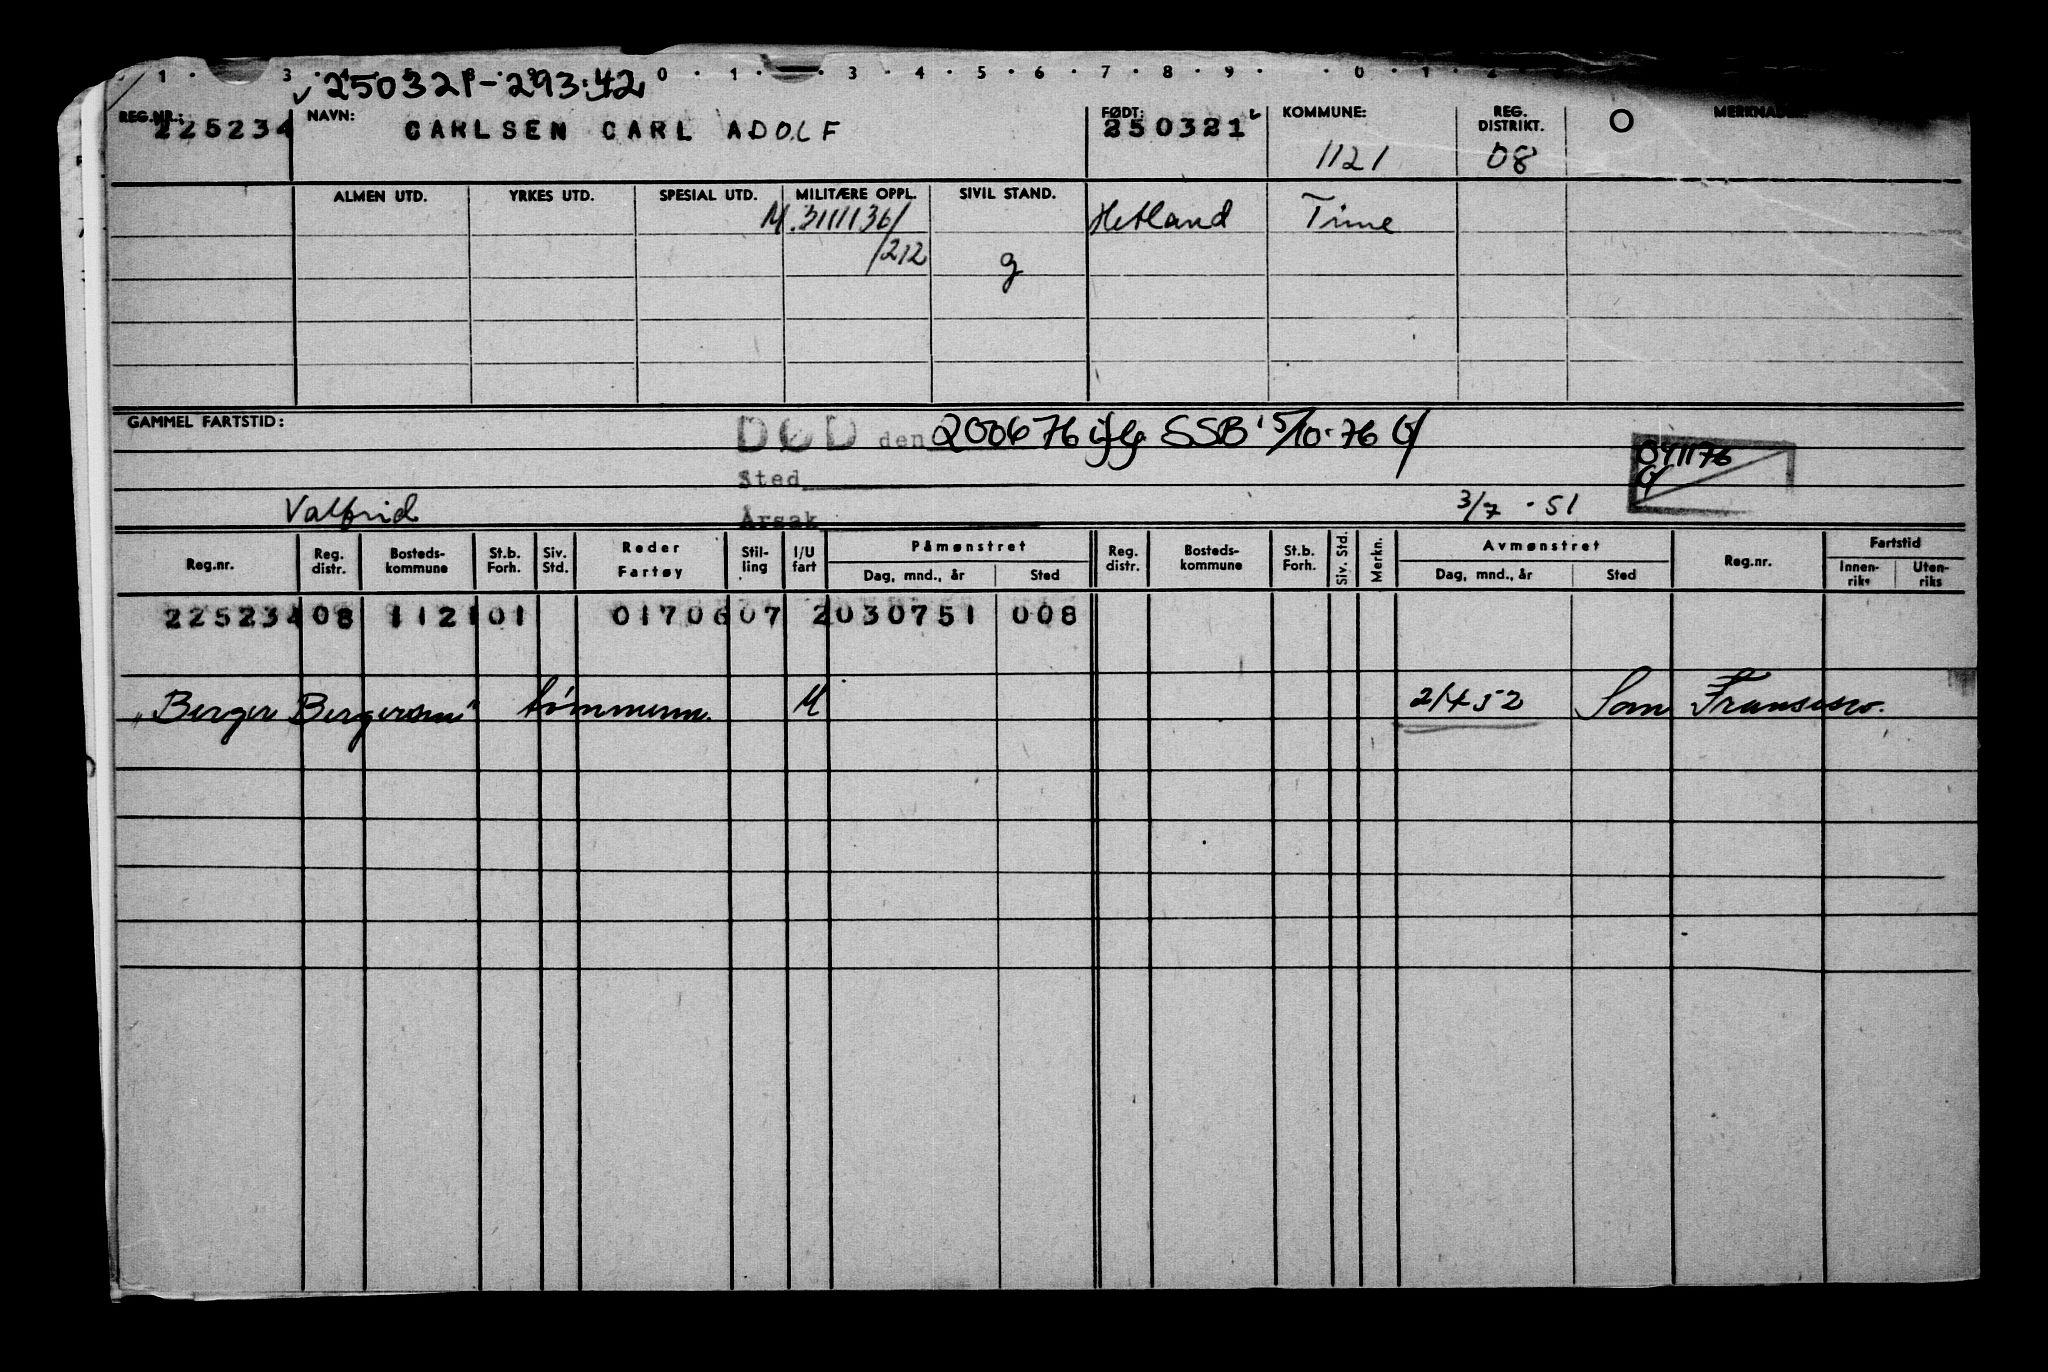 1 · 3 0 · 1 · 3 · 4 · 5 · 6 · 7 · 8 · 9 · 0 · 1
250321 - 293.42
REG.NR.: NAVN: FØDT: KOMMUNE: REG. DISTRIKT. O
225234 CARLSEN CARL ADOLF 250321 1121 08
ALMEN UTD. YRKES UTD. SPESIAL UTD. MILITÆRE OPPL. SIVIL STAND.
M.311136/ Hetland Time
/212 g
GAMMEL FARTSTID:
DØD den 200676 iflg SSB 5/10-76
041176
Sted
Valfrid Årsak 3/7 - 51
Reg.nr. Reg. distr. Bosteds- kommune St.b. Forh. Siv. Std. Reder Fartøy Stil- ling I/U fart Påmønstret Dag, mnd., år Sted Reg. distr. Bosteds- kommune St.b. Forh. Siv. Std. Merkn. Avmønstret Dag, mnd., år Sted Reg.nr. Fartstid Innen- riks Uten- riks
225234 08 1121 01 01706 07 2 030751 008
"Berger Bergersen" tømmerm. M 21452 San Fransisco.